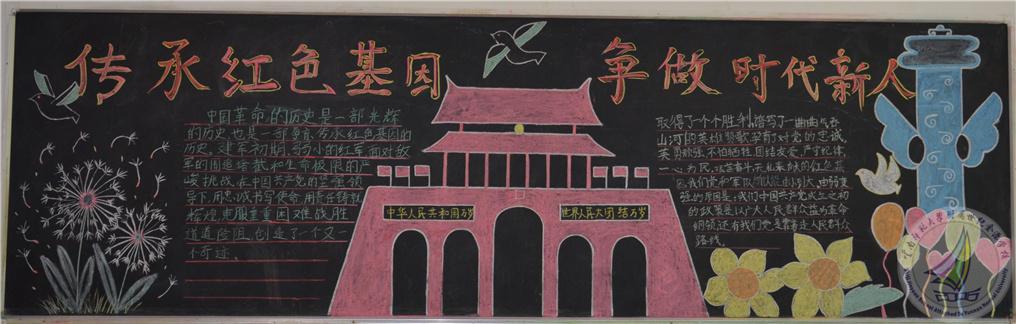 传承红色基因 争做时代新人
中国革命的历史是一部光辉
的历史，也是一部孕育、传承红色基因的
历史，建军初期，弱小的红军面对敌
军的围追堵截和生命极限的严
峻挑战，在中国共产党的坚强领
导下，用忠诚书写使命，用责任铸就
辉煌，克服重重困难，战胜
道道险阻，创造了一个又一
个奇迹。
中华人民共和国万岁
世界人民大团结万岁
取得了一个个胜利，谱写了一曲曲气吞
山河的英雄赞歌，孕育了对党的忠诚，
英勇顽强、不怕牺牲、团结友爱、严守纪律
一心为民、
我们党和军队 由小到大、由弱变
强的原因是：我们中国共产党成立之初
的政策是以广大人民群众 革命
纲领，还有我们党是靠着走人民群众
路线。